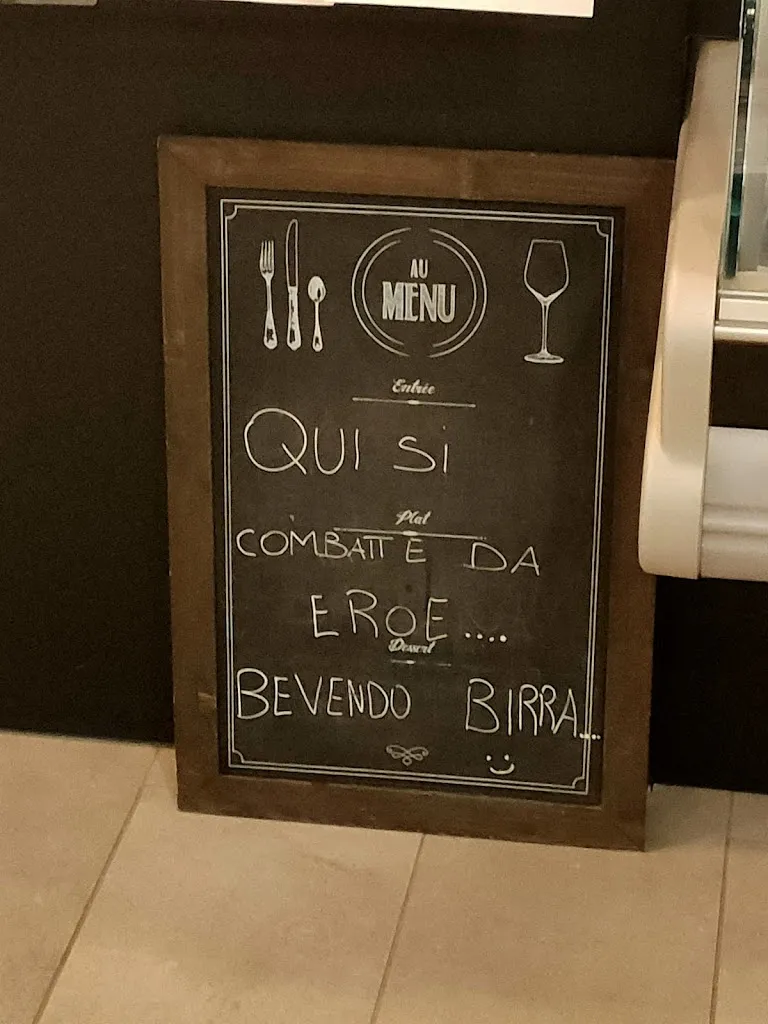 AU
MENU
Entrée
QUI Si
Plat
COMBATTE DA
EROE....
Dessert
BEVENDO BIRRA...